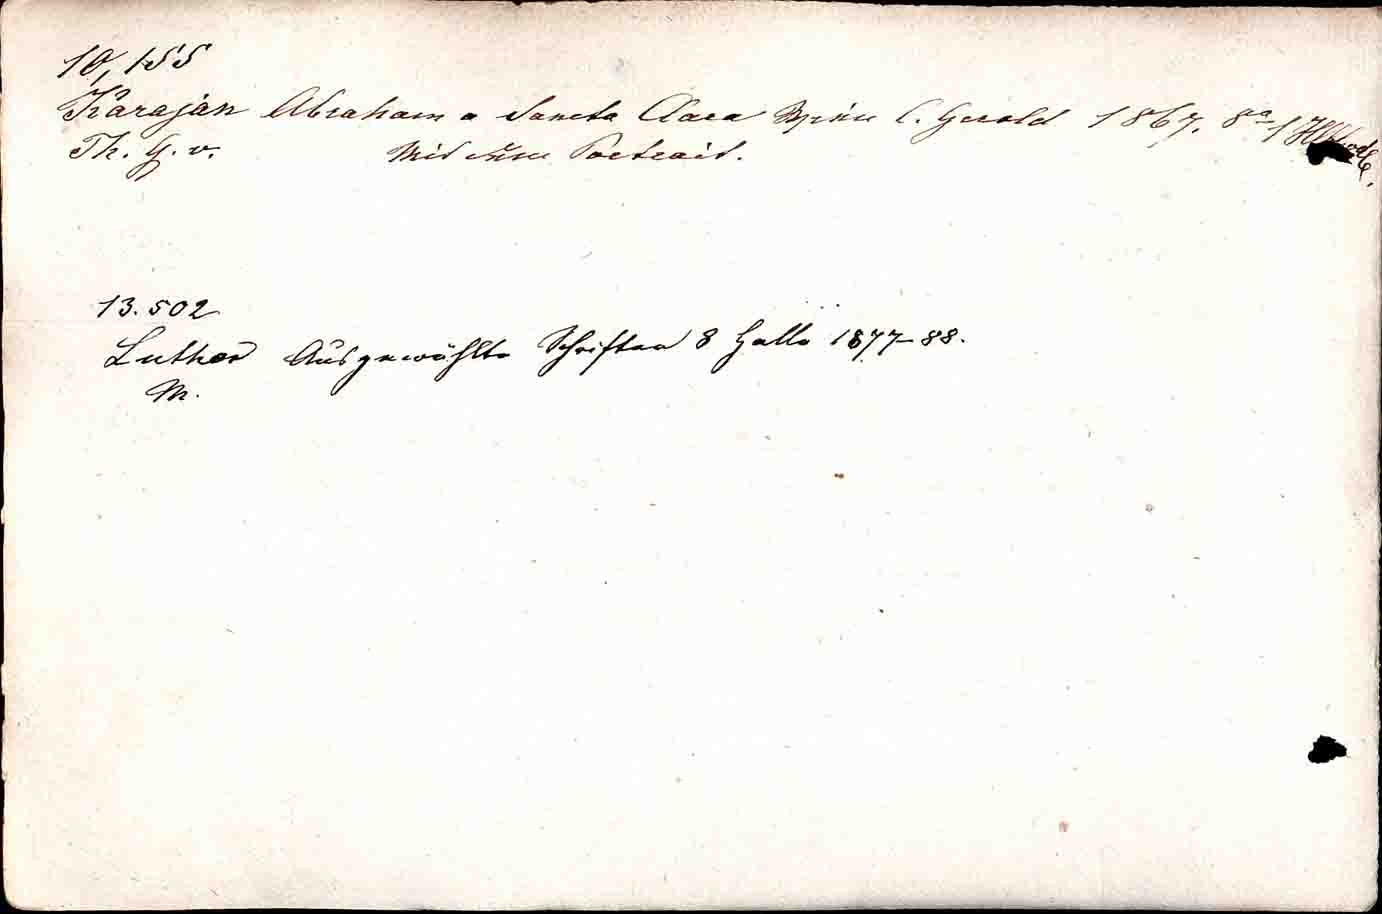 10,155
Karajan Abraham a Sancta Clara Wien C. Gerold 1867. 8° 1
Th. G. v. Mit einem Portrait.
13.502
Luther Ausgewählte Schriften 8 Halle 1877-88.
M.